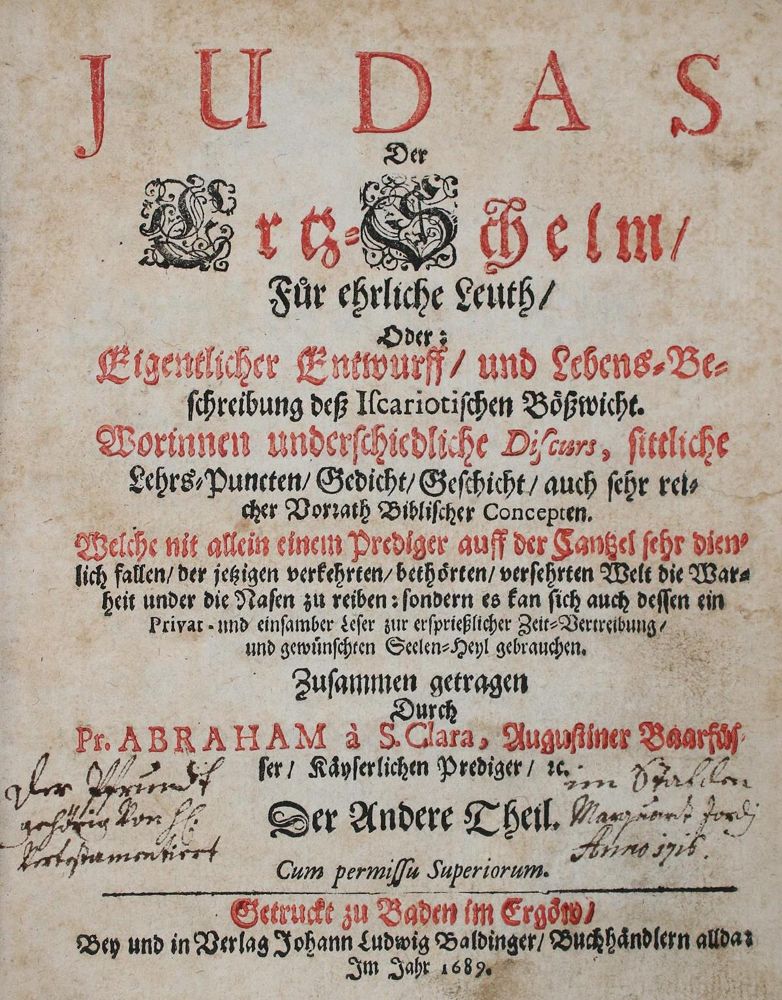 JUDAS
Der
Ertz-Schelm/
Für ehrliche Leuth/
Oder:
Eigentlicher Entwurff/ und Lebens-Be-
schreibung deß Iscariotischen Bößwicht.
Worinnen underschiedliche Discurs, sittliche
Lehrs-Puncten/ Gedicht/ Geschicht/ auch sehr rei-
cher Vorrath Biblischer Concepten.
Welche nit allein einem Prediger auff der Cantzel sehr dien-
lich fallen/ der jetzigen verkehrten/ bethörten/ versehrten Welt die War-
heit under die Nasen zu reiben: sondern es kan sich auch dessen ein
Privat- und einsamber Leser zur ersprießlicher Zeit-Vertreibung/
und gewünschten Seelen-Heyl gebrauchen.
Zusammen getragen
Durch
Pr. ABRAHAM à S. Clara, Augustiner Baarfüs-
ser/ Käyserlichen Prediger/ ꝛc.
Der Andere Theil.
Cum permissu Superiorum.
Der Pfrundt
gehörig von
Vertestamentiert
im Stalden
Marquart Jordj
Anno 1716.
Getruckt zu Baden im Ergöw/
Bey und in Verlag Johann Ludwig Baldinger/ Buchhändlern allda:
Im Jahr 1689.